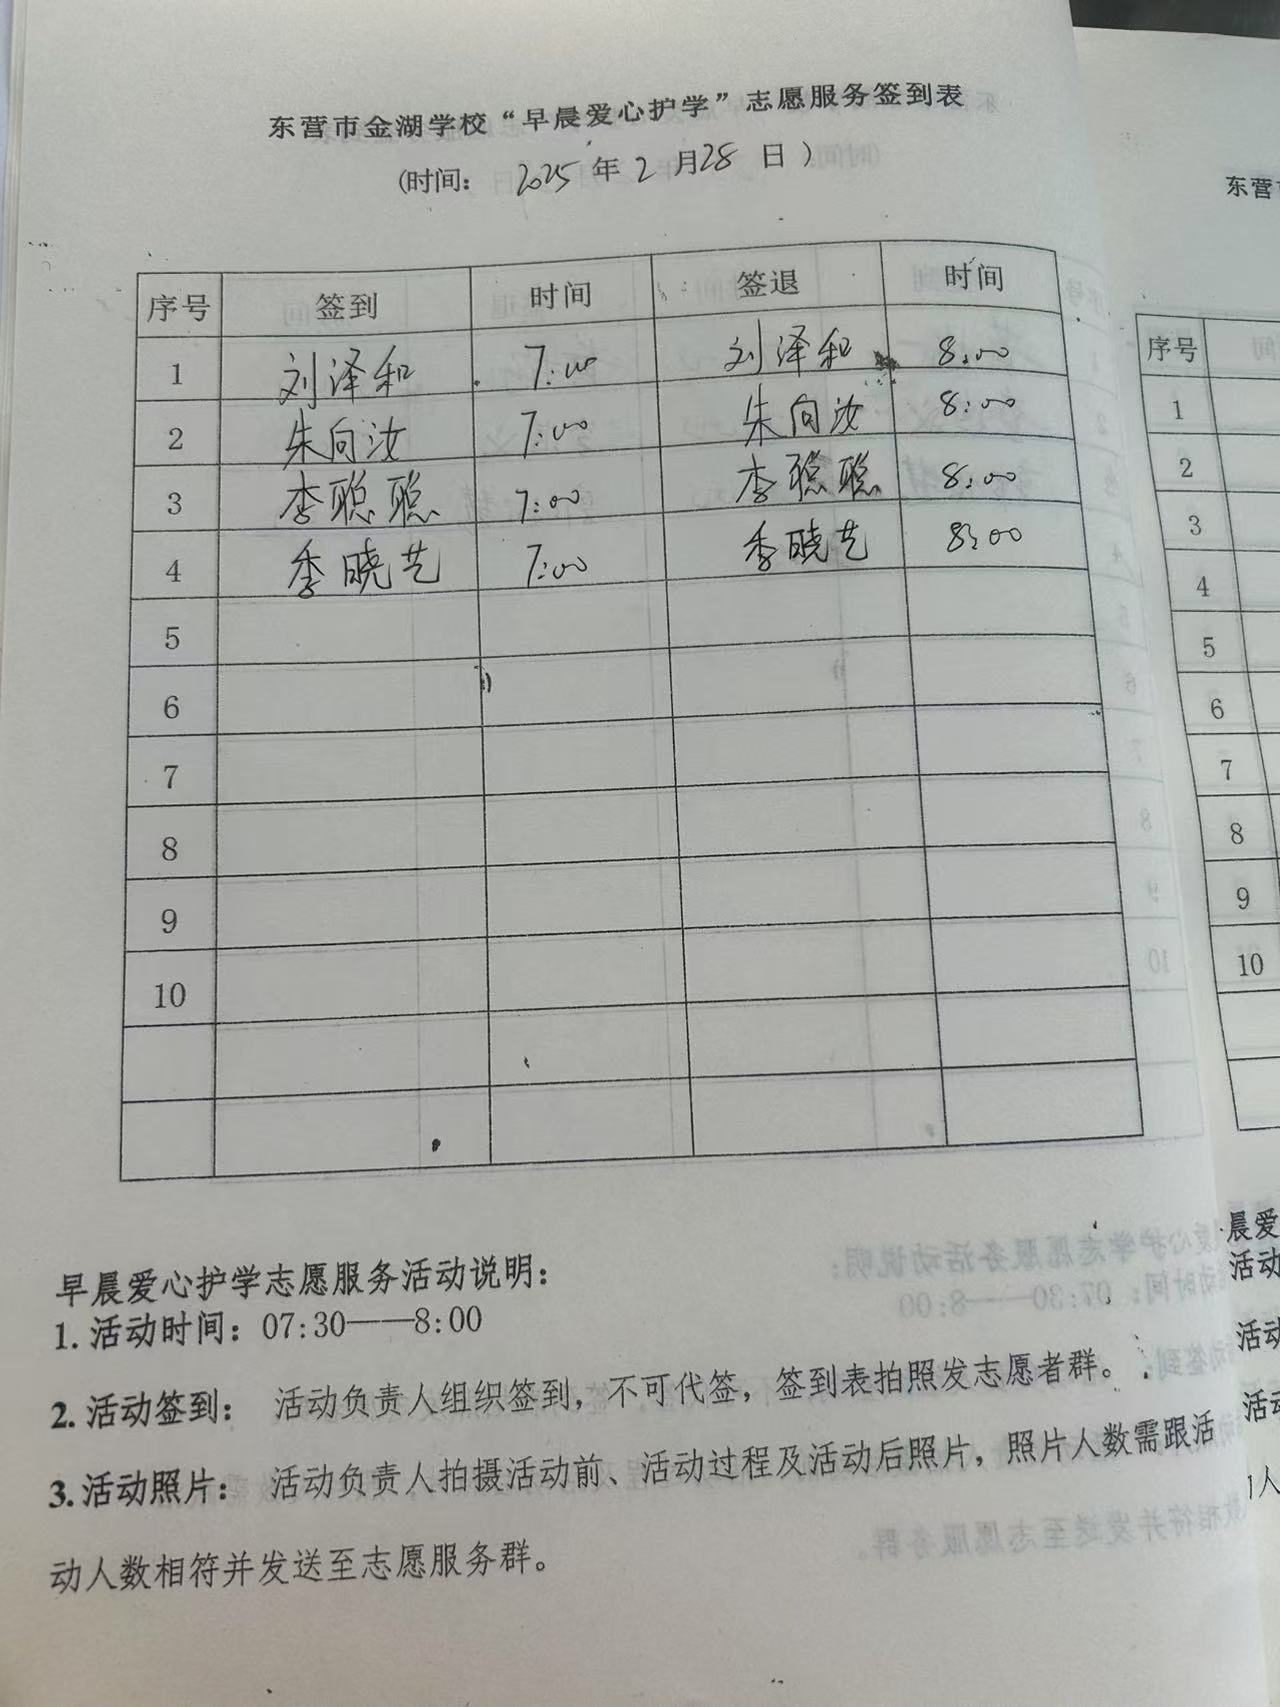 东营市金湖学校“早晨爱心护学”志愿服务签到表
(时间： 2025 年 2 月 28 日 )
序号 签到 时间 签退 时间
1 刘泽和 7:00 刘泽和 8:00
2 朱向汝 7:00 朱向汝 8:00
3 李聪聪 7:00 李聪聪 8:00
4 季晓艺 7:00 季晓艺 8:00
5
6
7
8
9
10
早晨爱心护学志愿服务活动说明：
1. 活动时间：07:30——8:00
2. 活动签到： 活动负责人组织签到，不可代签，签到表拍照发志愿者群。
3. 活动照片： 活动负责人拍摄活动前、活动过程及活动后照片，照片人数需跟活
动人数相符并发送至志愿服务群。
东营
序号
1
2
3
4
5
6
7
8
9
10
晨爱
活动
活动
活动
1人